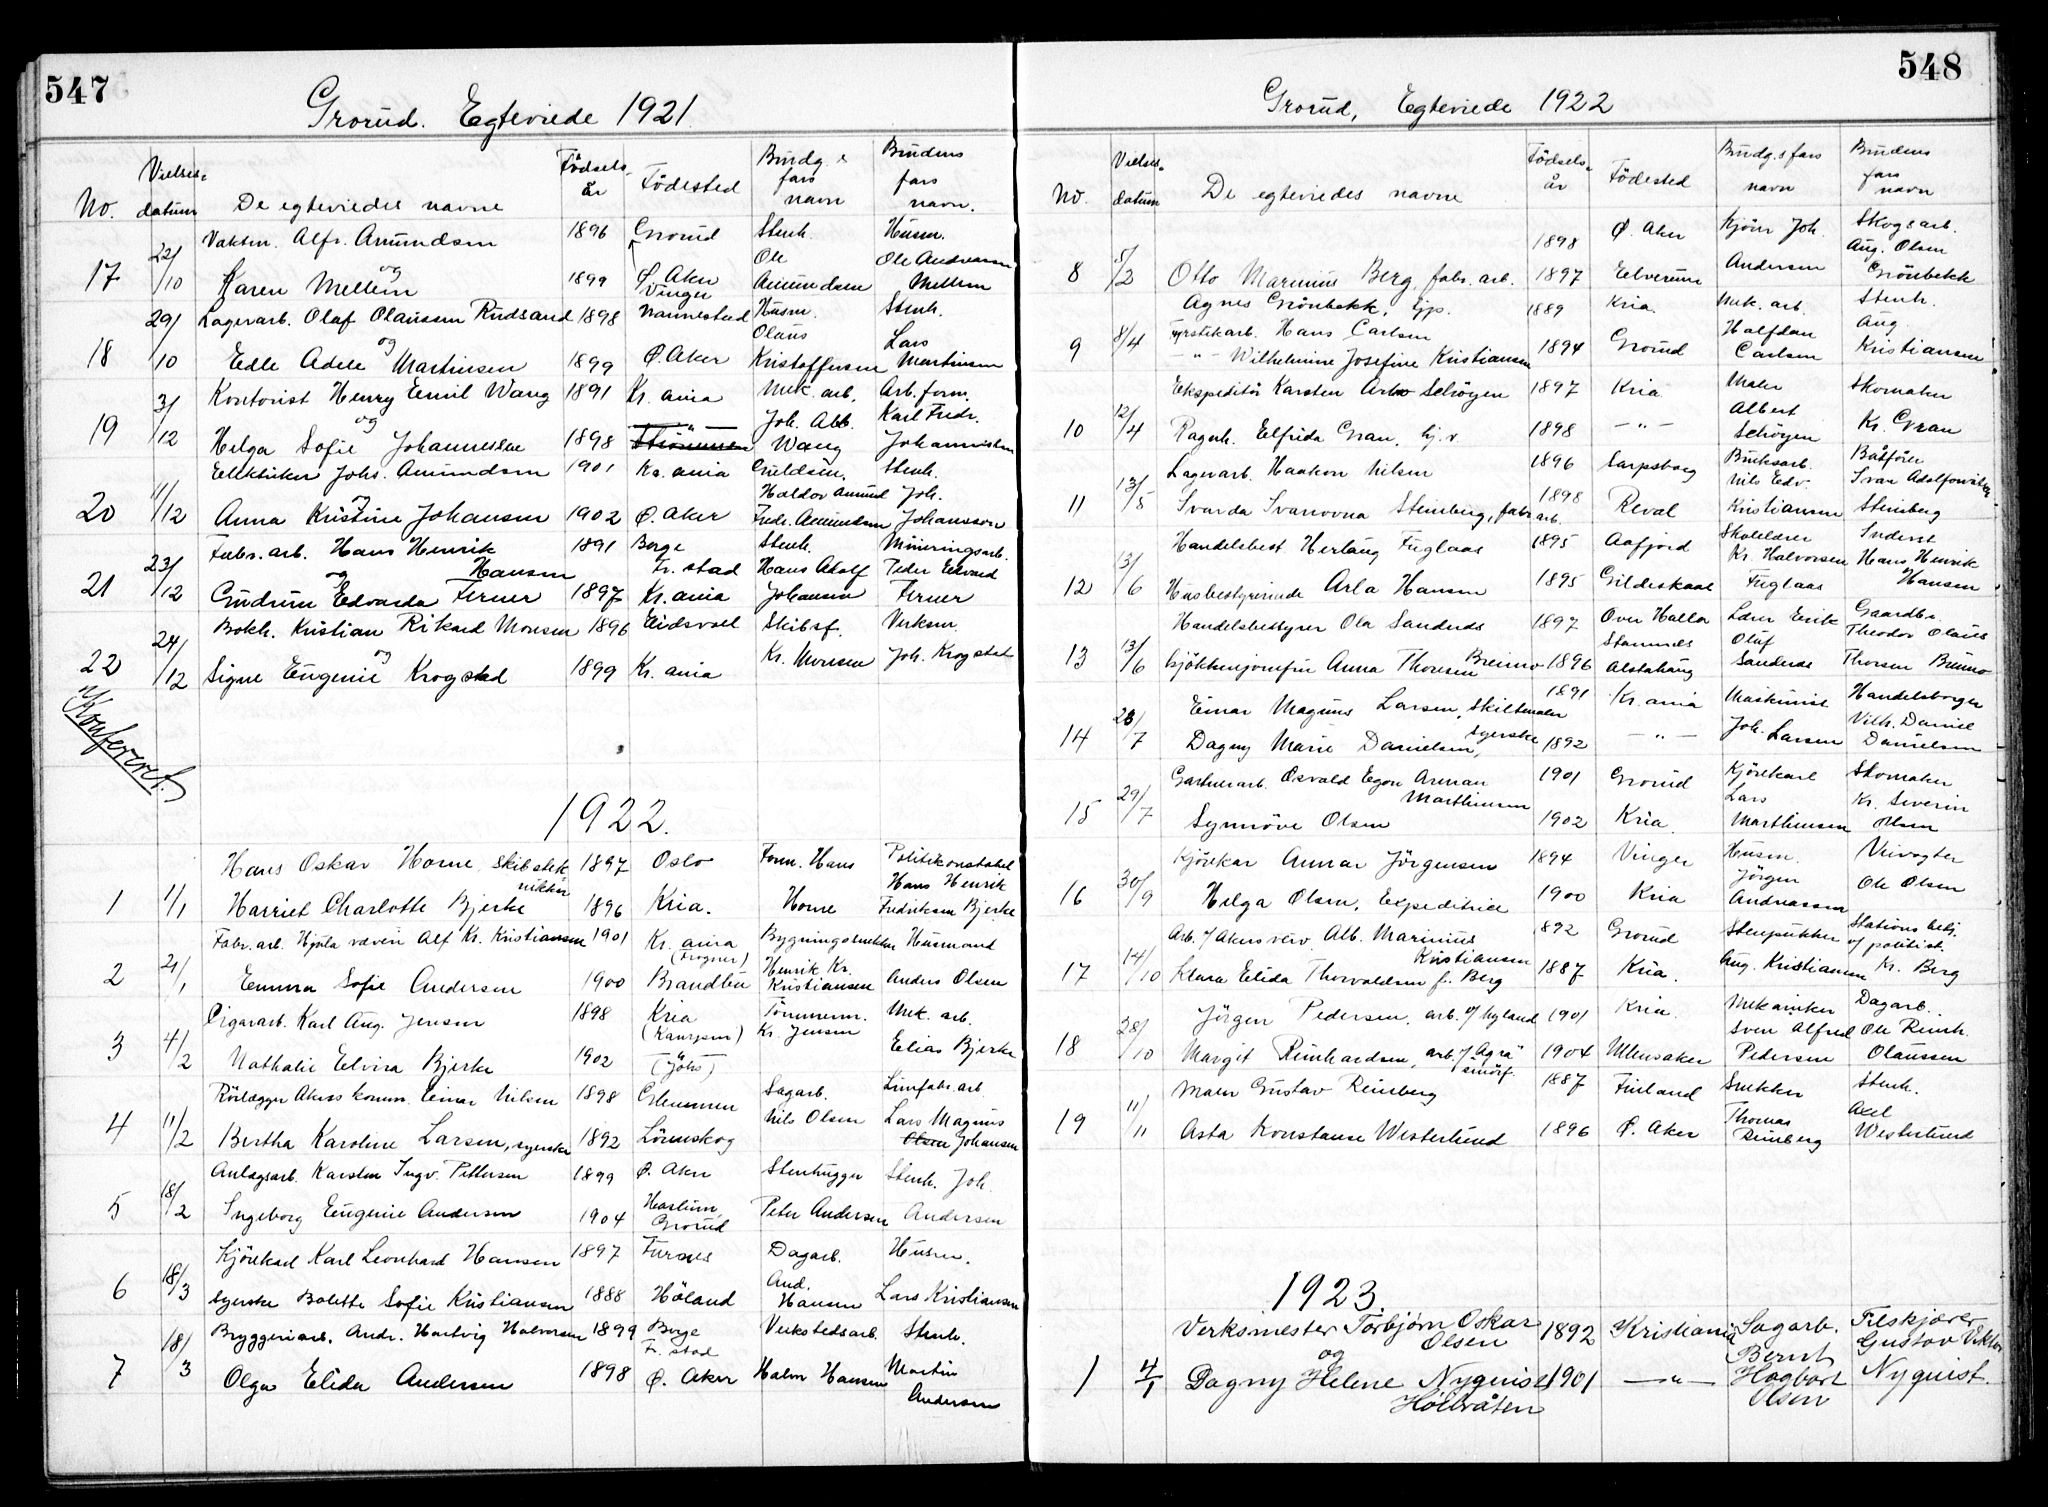 547
Grorud. Egteviede 1921.
No. Vielses-datum De egteviedes navne Fødsels-år Födested Brudg.s fars navn Brudens fars navn.
Alfr. Amundsen 1896 Grorud Stenh. Husm.
Ole Ole Andreassen
17 22/10 og
Karen Mellem 1899 Ø. Aker Amundsen Mellem
Vinger
29/10 Lagerarb. Olaf Olaussen Rudsand 1898 Nannestad Husm. Stenh.
Olaus Lars
18 og
Edle Adele Martinsen 1899 Ø. Aker Kristoffersen Martinsen
Kontorist Henry Emil Wang 1891 Kr. ania Mek. arb. Arb. form.
19 3/12 og Joh. Abb. Karl Fredr.
Helga Sofie Johannessen 1898 — " — Wang Johannessen
Elektriker Johs. Amundsen 1901 Kr. ania Guldsm. Stenh.
20 11/12 og Haldor Amund Joh.
Anna Kristine Johansen 1902 Ø. Aker Fredr. Amundsen Johansson
Fabr. arb. Hans Henrik 1891 Borge Stenh. Mineringsarb.
Hansen Fr. stad Hans Adolf Peder Edvard
21 23/12 og
Gudrun Edvarda Ferner 1897 Kr. ania Johansen Ferner
Bokh. Kristian Rikard Monsen 1896 Eidsvoll Skibsf. Verksm.
22 24/12 og Kr. Monsen Joh. Krogstad
Signe Eugenie Krogstad 1899 Kr. ania
Konfereret.
1922.
Hans Oskar Horne, Skibstek- 1897 Oslo Form. Hans Politikonstabel
nikker Hans Henrik
1 1/1 Harriet Charlotte Bjerke 1896 Kria. Horne Fredriksen Bjerke
Fabr. arb. Hjula væveri Alf Kr. Kristiansen 1901 Kr. ania Bygningssnekker Husmand
(Frogner) Henrik Kr.
2 21/1 Emma Sofie Andersen 1900 Brandbu Kristiansen Anders Olsen
Cigararb. Karl Aug. Jensen 1898 Kria Tömmerm. Mek. arb.
(Kampen) Kr. Jensen
3 4/2 Nathalie Elvira Bjerke 1902 Elias Bjerke
Rörlægger Akers komm. Einar Nilsen 1898 Glemmen Sagarb. Limfabr. arb.
4 11/2 Nils Olsen Lars Magnus
Bertha Karoline Larsen, syerske 1892 Lörenskog Olsen Johansen
Anlægsarb. Karsten Ingv. Pettersen 1899 Ø. Aker Stenhugger Stenh. Joh.
5 18/2 Ingeborg Eugenie Andersen 1904 Haslum, Peter Andersen Andersen
Grorud
Kjörekarl Karl Leonhard Hansen 1897 Furnes Dagarb. Husm.
6 18/3 And.
syerske Bolette Sofie Kristiansen 1888 Höland Hansen Lars Kristiansen
Bryggeriarb. Andr. Hartvig Halvorsen 1899 Borge Verkstedsarb. Stenh.
Fr. stad
7 18/3 Olga Elida Andersen 1898 Ø. Aker Halvor Hansen Martin
Andersen
548
Grorud, Egteviede 1922
No. Vielses-datum De egteviedes navne Fødsels-år Födested Brudg.s fars navn Brudens fars navn
1898 Ø. Aker Joh. Skogsarb.
Aug. Olsen
8 5/2 Otto Marinius Berg, fabr. arb. 1897 Elverum Andersen Grönbekk
Agnes Grönbekk, 1889 Kria. Mek. arb. Stenh.
9 8/4 Fyrstikarb. Hans Carlsen Halfdan Aug.
— " — Wilhelmine Josefine Kristiansen 1894 Grorud Carlsen Kristiansen
Ekspeditör Karsten Arbo Schöyen 1897 Kria Maler Skomaker
Albert
10 12/4 Ragnh. Elfrida Gran, hj. v. 1898 — " — Schöyen Kr. Gran
Lagerarb. Haakon Nilsen 1896 Sarpsborg Bruksarb. Båtförer
Nils Edv. Ivan
11 13/5 Ivanovna Steinberg, fabr. arb. 1898 Reval Kristiansen Steinberg
Handelsbest. Herlaug Fuglaas 1895 Aafjord Skolelærer Inderst
Kr. Halvorsen Hans Henrik
12 3/6 Husbestyrerinde Arla Hansen 1895 Gildeskaal Fuglaas Hansen
Handelsbestyrer Ola Sandnes 1897 Over Halla Lærer Erik Gaardbr.
Stamnes Oluf Theodor Olaus
13 13/6 Kjökkenjomfru Anna Thoresen Breimo 1896 Alstahaug Sandnes Thorsen Breimo
Einar Magnus Larsen, skiltmaler 1891 Kr. ania Maskinist Handelsborger
14 28/7 Dagny Marie Danielsen, syerske 1892 — " — Joh. Larsen Vilh. Daniel
Danielsen
Gartnerarb. Osvald Egon Arman 1901 Grorud Kjörekarl Skomaker
Marthinsen Lars Kr. Severin
15 29/7 Synnöve Olsen 1902 Kria. Marthinsen Olsen
Kjörekar Annar Jörgensen 1894 Vinger Husm. Veivogter
Jörgen
16 30/9 Helga Olsen, Expeditrice 1900 Kria Andreassen Ole Olsen
Arb. v/ Akers verv. Alb. Marinius 1892 Grorud Stenpukker Stations betj.
Kristiansen v/ politiet.
17 14/10 Klara Elida Thorvaldsen f. Berg 1887 Kria. Aug. Kristiansen Kr. Berg
Jörgen Pedersen, arb. v/ Nyland 1901 Kria. Mekaniker Dagarb.
Sven Alfred Ole Reinh.
18 28/10 Margit Reinhardsen, arb. v/ "Agra" smörf. 1904 Ullensaker Pedersen Olaussen
Maler Gustav Reinberg 1887 Finland Snekker Stenh.
Thomas Axel
19 11/11 Asta Konstanse Westerlund 1896 Ø. Aker Reinberg Westerlund
1923.
Verksmester Torbjørn Oskar 1892 Kristiania Sagarb. Fiskjører
Olsen Bernt Gustav Viktor
og
1 4/1 Dagny Helene Nyquist 1901 — " — Hagbart Nyquist.
Holtvåten Olsen